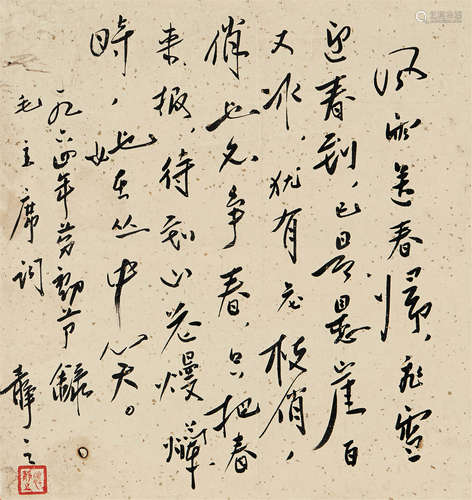 风雨送春歸，飛雪
迎春到，已是悬崖百
丈冰，犹有花枝俏，
俏也不争春，只把春
来报，待到山花熳爛
時，她在丛中笑。
一九六四年劳動节錄。
毛主席词